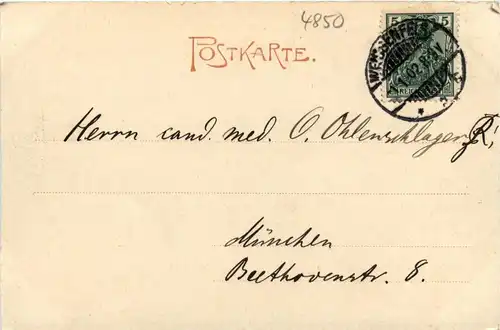 4850
POSTKARTE.
5 5
WEISSENFELS
02.8-9V
REICH
Herrn cand. med. O. Ohlenschlager
München
Beethovenstr. 8.